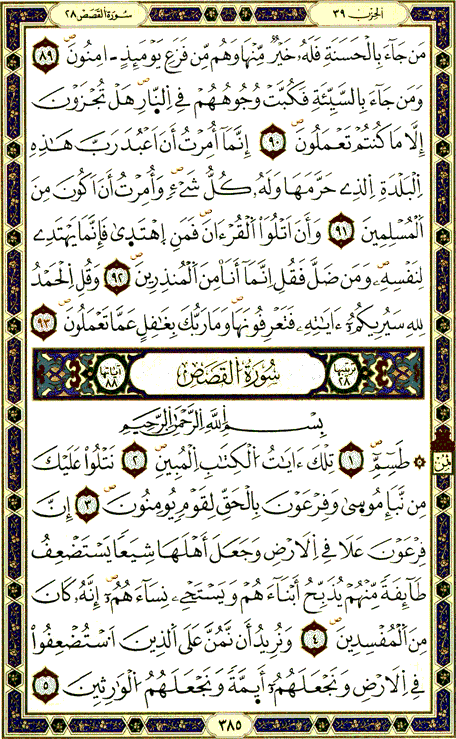 الحزب ٣٩
سورة القصص ٢٨
مَن جَآءَ بِالْحَسَنَةِ فَلَهُۥ خَيْرٌ مِّنْهَا وَهُم مِّن فَزَعِ يَوْمَئِذٍ ءَامِنُونَ ٨٩
وَمَن جَآءَ بِالسَّيِّئَةِ فَكُبَّتْ وُجُوهُهُمْ فِي اِلنَّارِ هَلْ تُجْزَوْنَ
إِلَّا مَا كُنتُمْ تَعْمَلُونَ ٩٠ إِنَّمَآ أُمِرْتُ أَنَ اَعْبُدَ رَبَّ هَٰذِهِ
اِلْبَلْدَةِ اِلذِے حَرَّمَهَا وَلَهُۥ كُلُّ شَےْءٍ وَأُمِرْتُ أَنَ اَكُونَ مِنَ
اَلْمُسْلِمِينَ ٩١ وَأَنَ اَتْلُوَا۟ اَلْقُرْءَانَ فَمَنِ اِهْتَد۪ىٰ فَإِنَّمَا يَهْتَدِے
لِنَفْسِهِۦ وَمَن ضَلَّ فَقُلِ اِنَّمَآ أَنَا مِنَ اَلْمُنذِرِينَ ٩٢ وَقُلِ اِلْحَمْدُ
لِلهِ سَيُرِيكُمُۥٓ ءَايَٰتِهِۦ فَتَعْرِفُونَهَا وَمَا رَبُّكَ بِغَٰفِلٍ عَمَّا تَعْمَلُونَ ٩٣
ترتيبها ٢٨ سُورَةُ الْقَصَصِ آياتها ٨٨
بِسْمِ اللَّهِ الرَّحْمَٰنِ الرَّحِيمِ
طَسِٓمِّٓ ١ تِلْكَ ءَايَٰتُ اُلْكِتَٰبِ اِلْمُبِينِ ٢ نَتْلُوا۟ عَلَيْكَ
ثمن
مِن نَّبَإِ مُوس۪ىٰ وَفِرْعَوْنَ بِالْحَقِّ لِقَوْمٍ يُومِنُونَ ٣ إِنَّ
فِرْعَوْنَ عَلَا فِي اِلَارْضِ وَجَعَلَ أَهْلَهَا شِيَعاً يَسْتَضْعِفُ
طَآئِفَةً مِّنْهُمْ يُذَبِّحُ أَبْنَآءَهُمْ وَيَسْتَحْيِۦ نِسَآءَهُمُۥٓ إِنَّهُۥ كَانَ
مِنَ اَلْمُفْسِدِينَ ٤ وَنُرِيدُ أَن نَّمُنَّ عَلَى اَلذِينَ اَسْتُضْعِفُوا۟
فِي اِلَارْضِ وَنَجْعَلَهُمُۥٓ أَئِمَّةً وَنَجْعَلَهُمُ اُلْوَٰرِثِينَ ٥
٣٨٥